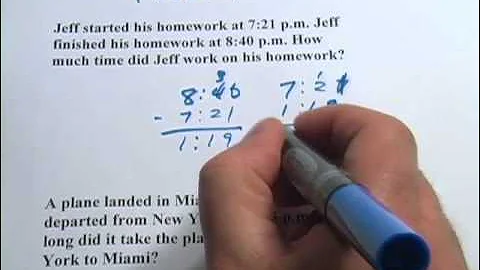 Jeff started his homework at 7:21 p.m. Jeff
finished his homework at 8:40 p.m. How
much time did Jeff work on his homework?
3 1
8:40 7:21
- 7:21 1:19
1:19
A plane landed in Mia
departed from New Yo p.m.
long did it take the pla
York to Miami?